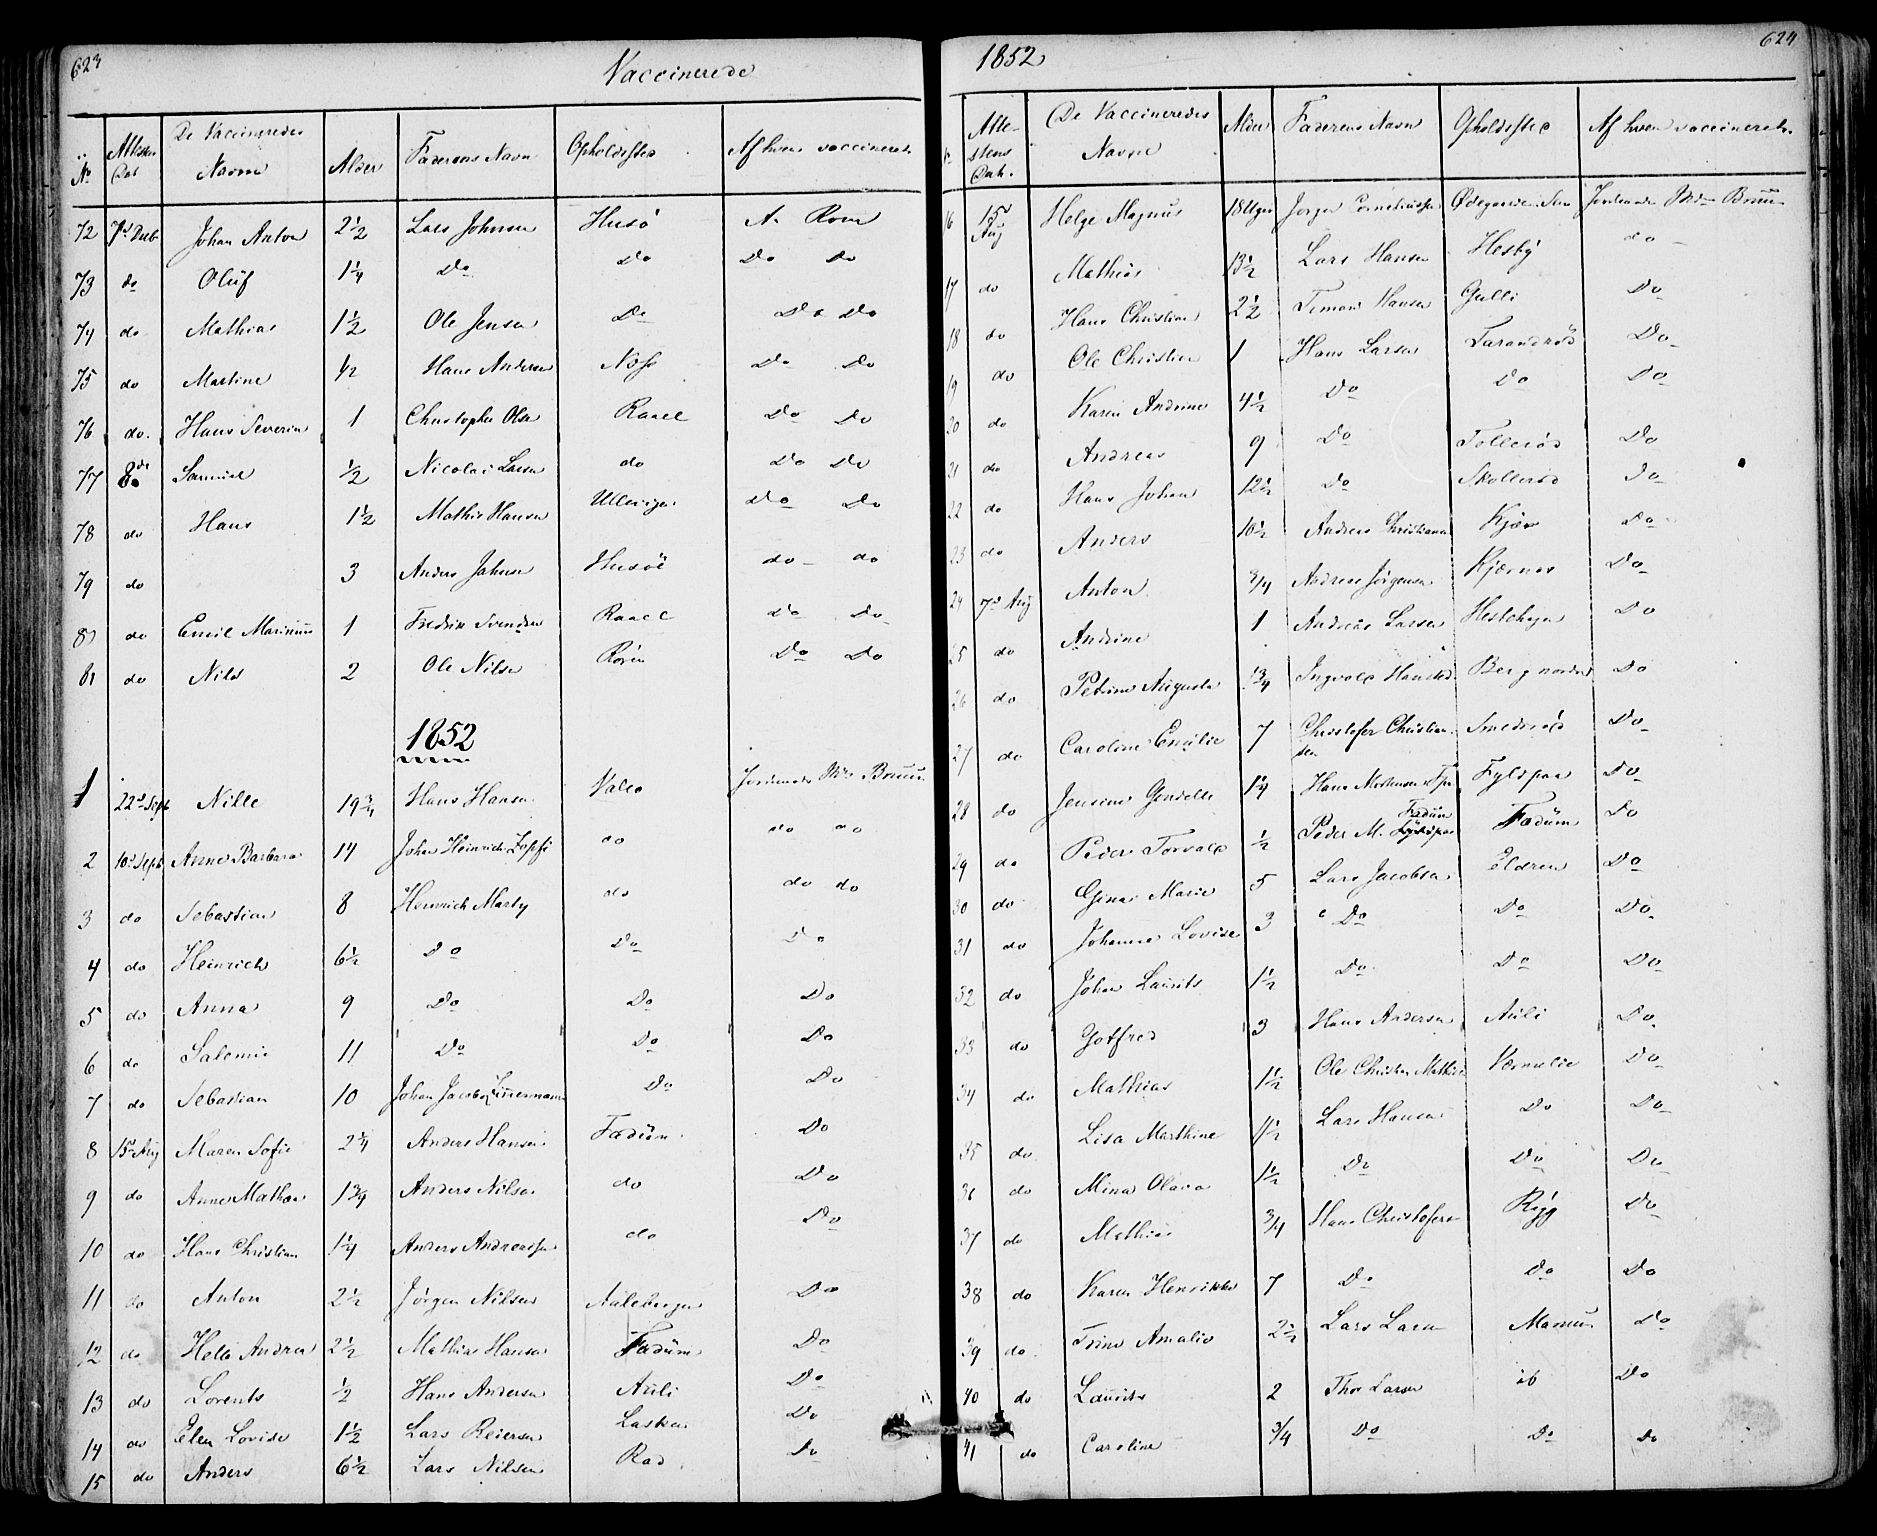 623
Vaccinerede
No Attestens Dat De Vaccineredes Navne Alder Faderens Navn Opholdssted Af hvem vaccineret
72 7d Dcb Johan Anton 2½ Lars Johnsen Husö A. Rom
73 do Oluf 1¼ Do Do Do Do
74 do Mathias 1½ Ole Jensen Do Do Do
75 do Martine ½ Hans Andersen Do Do
76 do. Hans Severin 1 Christopher Olsen Raael Do Do
77 8de Samuel ½ Nicolai Larsen do Do Do
78 do Hans 1½ Mathis Hansen Do Do
79 do 3 Anders Johnsen Husöe do do
80 do Emil Marinius 1 Fredrik Svendsen Raael Do Do
81 do Nils 2 Ole Nilsen Do Do
1852
1 22d Sept Nille 19¾ Hans Hansen Valø Jordemoder Md. Bruun
2 10d Sept Anne Barbara 14 Johan Heinrich do do do
3 do Sebastian 8 Heinrich Marty do do do
4 do Heinrich 6½ Do Do Do
5 do Anna 9 Do Do Do
6 do Salemie 11 Do Do Do
7 do Sebastian 10 Johan Jacob Zimmermann Do Do
8 15d Aug Maren Sofie 2¼ Anders Hansen Fadüm Do
9 do Anne Mathea 1¾ Anders Nilsen do Do
10 do Hans Christian 1¼ Anders Andreassen do Do
11 do Anton 2½ Jörgen Nilsen Do
12 do Helle Andrea 2½ Mathias Hansen Fadüm Do
13 do Lorents ½ Hans Andersen Auli Do
14 do Elen Lovise 1½ Lars Reiersen Do
15 do Anders 6½ Lars Nilsen Rad Do
1852
624
No Attestens Dat. De Vaccineredes Navne Alder Faderens Navn Opholdssted Af hvem vaccineret.
16 15d Aug Helge Magnus 18 Uger Jørgen Corneliussen Jordemoder Md. Bruun
17 do Mathias 13½ Lars Hansen Hesby do
18 do Hans Christian 2½ Simon Hansen Gulli Do
19 do Ole Christian 1 Hans Larsen Do
20 do Karen Andrine 4½ Do Do Do
21 do Andreas 9 Do Tollerød Do
22 do Hans Johan 12½ Do Skollerød Do
23 do Anders 10½ Andreas Christiansen Do
24 7d Aug Anton ¾ Andreas Jörgensen Kjærnæs Do
25 do Andrine 1 Andreas Larsen Do
26 do Petrine Augusta 1¾ Ingvald Berg nordre Do
27 do Caroline Emilie 7 Christofer Christiansen Smedsröd Do
28 do Jensine 1¼ Hans Mortensen Fyldpaa Do
29 do Peder Torvald ½ Peder M. Fadüm Fadüm Do
30 do Gina Marie 5 Lars Jacobsen Eldren Do
31 do Johanne Lovise 3 Do Do Do
32 do Johan Laurits 1½ Do Do Do
33 do Gotfred 3 Hans Andersen Auli Do
34 do Mathias 1½ Ole Christian Do
35 do Lisa Marthine 1½ Lars Hansen Do Do
36 do Mina Olava 1½ Do Do Do
37 do Mathias ¾ Hans Christofersen Rygg Do
38 do Karen Henrikke 7 Do Do Do
39 do Trine Amalie 2½ Lars Larsen Do
40 do Laurits 2 Thor Larsen ib Do
41 do Caroline ¾ Do Do Do